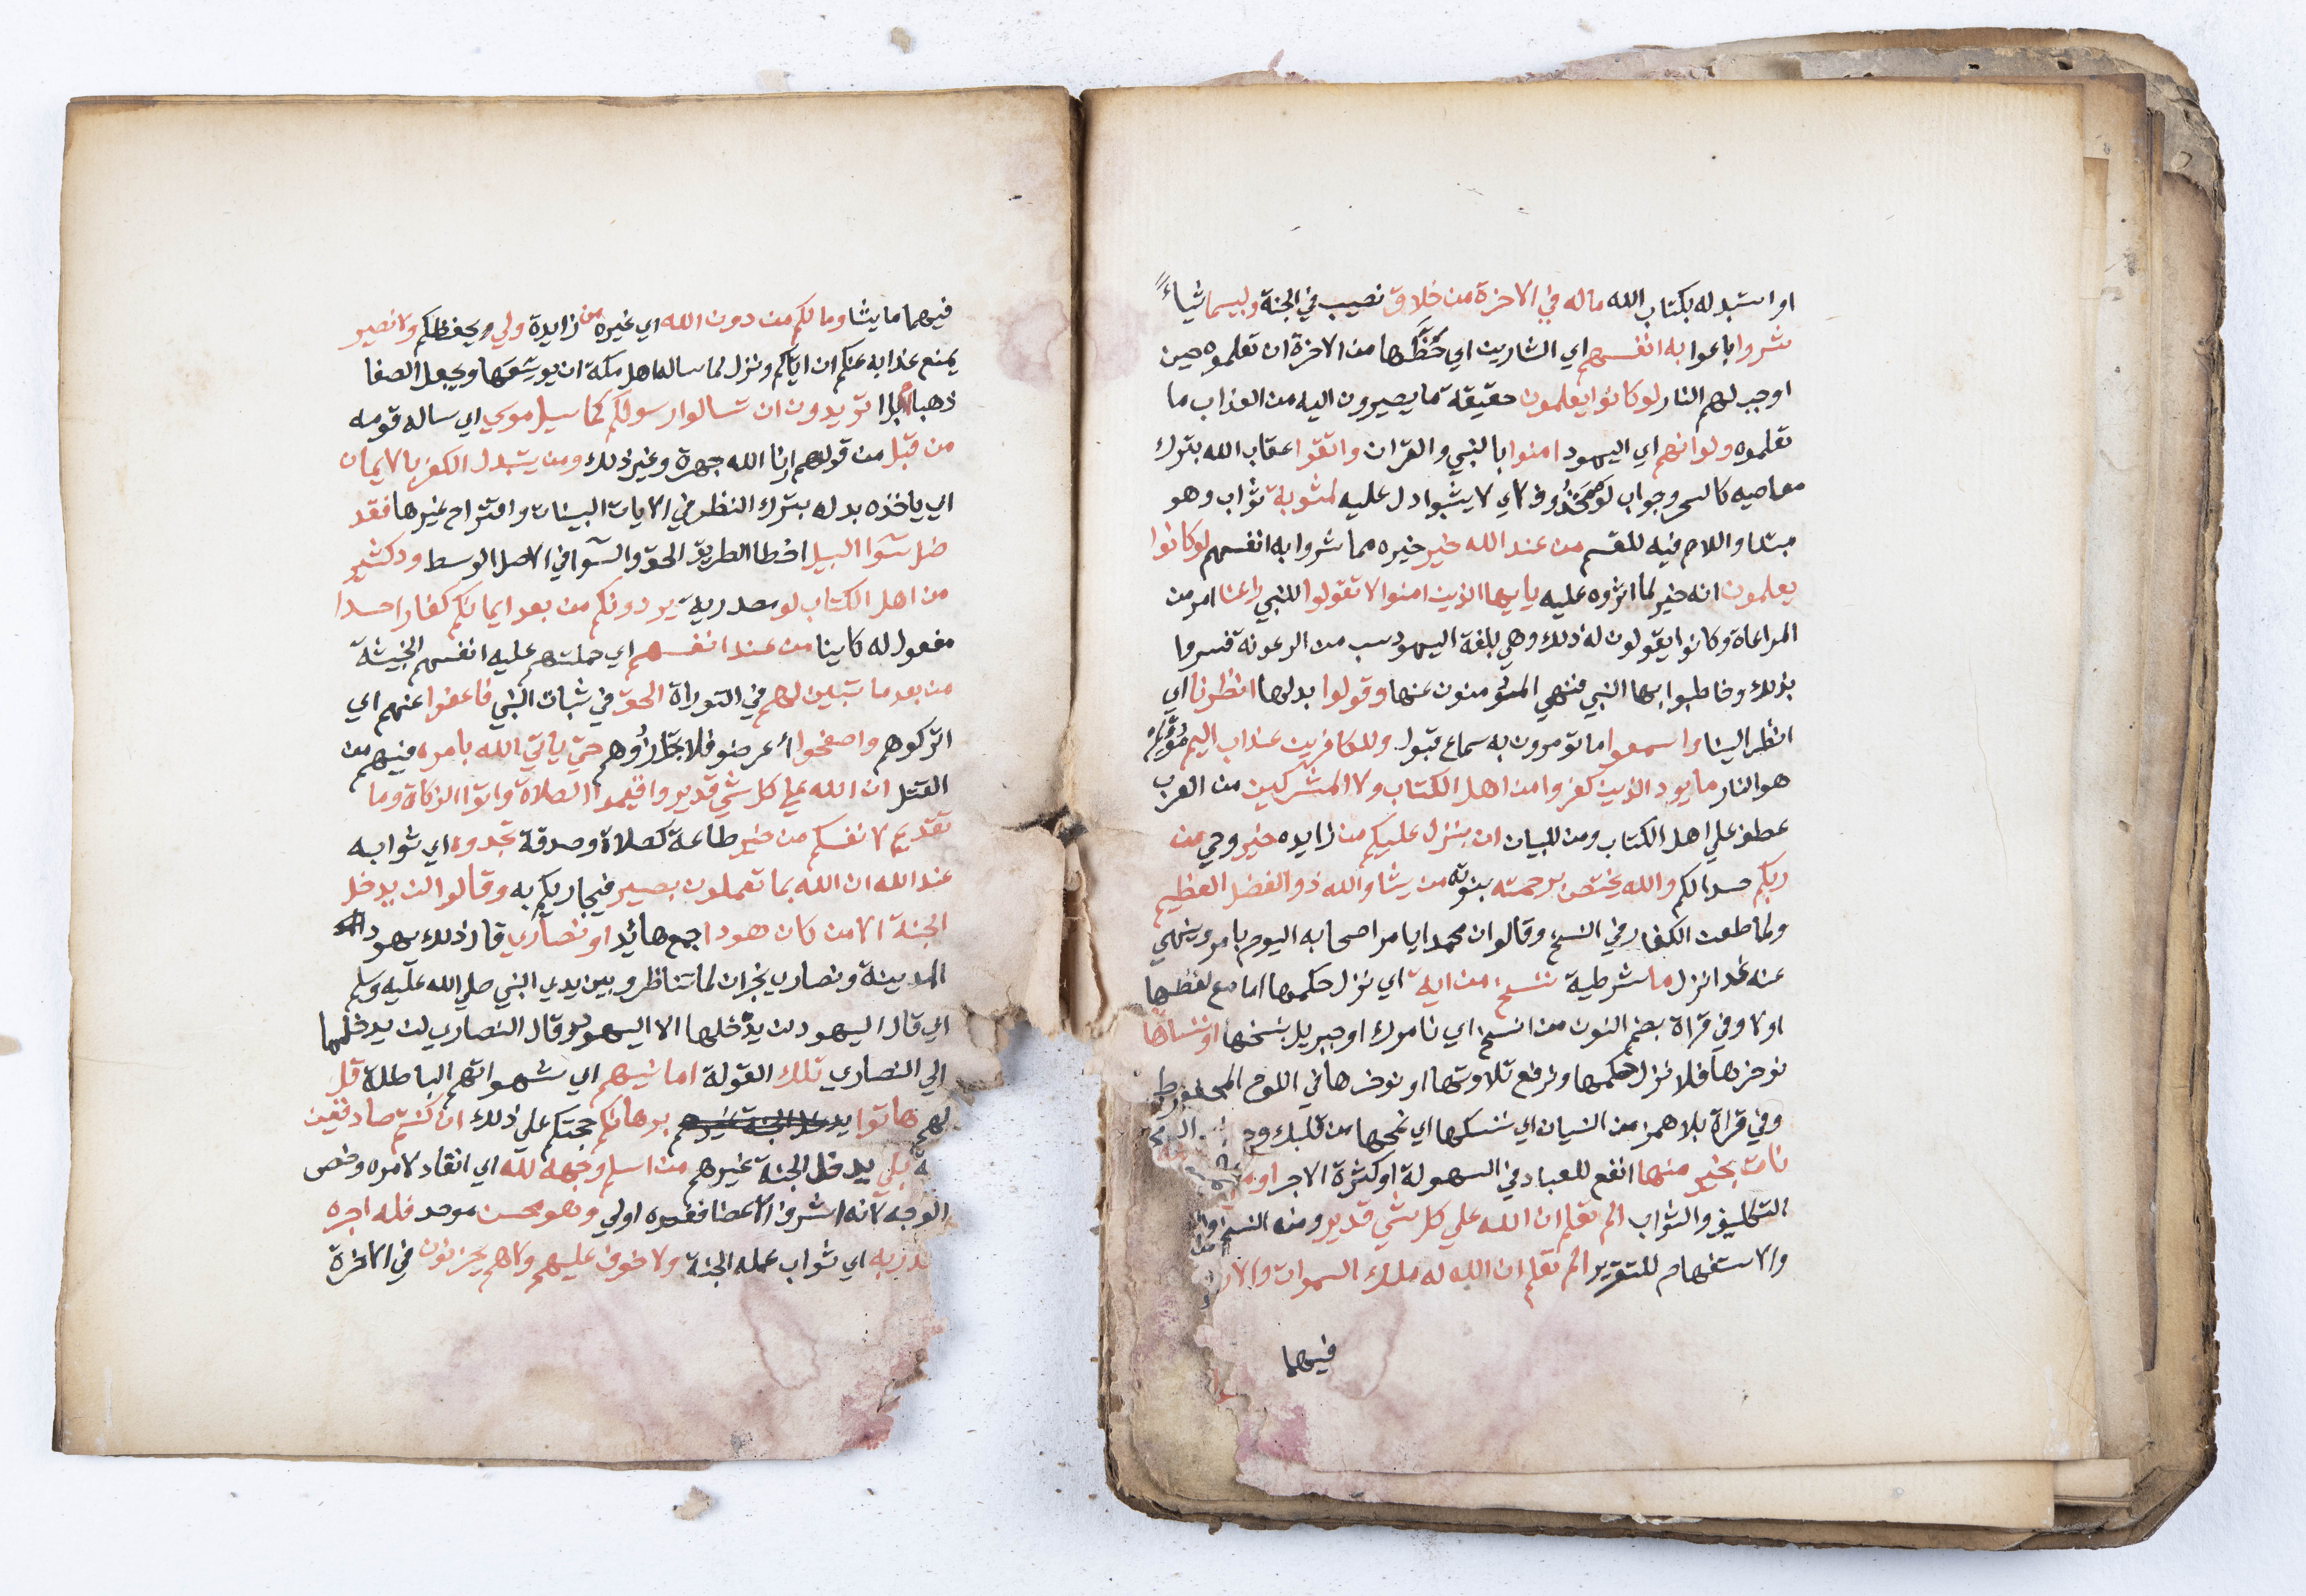 او استبدله بكتاب الله ماله في الاخرة من خلاق نصيب في الجنة ولبيس ما شياءً
شروا باعوا به انفسهم اي الشارين اي حَظَّها من الاخرة ان تعلموه حين
اوجب لهم النار لو كانوا يعلمون حقيقة ما يصيرون اليه من العذاب ما
تعلموه ولو انهم اي اليهود امنوا بالنبي والقران واتقوا عقاب الله بترك
معاصيه كالسحر وجواب لو محذوف لاي لا يثبوا دل عليه لمثوبة ثواب وهو
مبتدا واللام فيه للقسم من عند الله خير خيره مما شروا به انفسهم لو كانوا
يعلمون انه خير لما اثروه عليه يايها الذين امنوا لا تقولوا للنبي راعنا امر من
المراعاة وكانوا يقولون له ذلك وهي بلغة اليهود سب من الرعونة فسروا
بذلك وخاطبوا بها النبي فنهي المئومنون عنها وقولوا بدلها انظرنا اي
انظر الينا واسمعوا ما تومرون به سماع قبول وللكافرين عذاب اليم مُؤلِم
هو النار ما يود الذين كفروا من اهل الكتاب ولا المشركين من العرب
عطف علي اهل الكتاب ومن للبيان ان ينزل عليكم من زايده خير وحي من
ربكم حسدا لكم والله يختص برحمته بنبوته من يشا والله ذو الفضل العظيم
ولما طعن الكفار في النسخ وقالوا ان محمدا يامر اصحابه اليوم بامر وينهي
عنه غدا نزل ما شرطية ننسخ من اية اي نزل حكمها اما مع لفظها
اولا وفي قراة بضم النون من انسخ اي نامرك او جبريل بنسخها او ننساها
نوخرها فلا نزل حكمها ونرفع تلاوتها او نوخرها في اللوح المحفوظ
وفي قراة بلا همز من النسيان اي ننسكها اي نمحها من قلبك و
نات بخير منها انفع للعباد في السهولة او كثرة الاجر او
التكليف والثواب الم تعلم ان الله علي كل شي قدير ومنه النسخ
والاستفهام للتقرير الم تعلم ان الله له ملك السموات والار
فيهما
فيهما ما يشا وما لكم من دون الله اي غيره من زايدة ولي ويحفظكم ولا نصير
يمنع عذابه عنكم ان اتاكم ونزل لما ساله اهل مكة ان يوسعها ويجعل الصفا
ذهبا ام بل ا تريدون ان تسالوا رسولكم كما سيل موسي اي ساله قومه
من قبل من قولهم ارنا الله جهرة وغير ذلك ومن يتبدل الكفر بالايمان
اي ياخذه بدله بترك النظر في الايات البينات واقتراح غيرها فقد
ضل سوا السبيل اخطا الطريق الحق والسوا في الاصل الوسط ود كثير
من اهل الكتاب لو مصدرية يردونكم من بعد ايمانكم كفارا حسدا
مفعول له كاينا من عند انفسهم اي حملتهم عليه انفسهم الخبيثة
من بعد ما تبين لهم في التوراة الحق في شبات النبي فاعفوا عنهم اي
اتركوهم واصفحوا اعرضو فلا تجازوهم حتي ياتي الله بامره فيهم من
القتل ان الله علي كل شي قدير واقيموا الصلاة واتوا الزكاة وما
تقدم لانفسكم من خير طاعة كصلاة وصدقة تجدوه اي ثوابه
عند الله ان الله بما تعملون بصير فيجازيكم به وقالوا لن يدخل
الجنة الا من كان هودا جمع هائد او نصاري قال ذلك يهود
المدينة ونصاري نجران لما تناظرو بين يدي النبي صلي الله عليه وسلم
اي قال اليهود لن يدخلها الا اليهود وقال النصاري لن يدخلها
الي النصاري تلك القولة امانيهم اي شهواتهم الباطلة قل
لهم هاتوا برهانكم حجتكم علي ذلك ان كنتم صادقين
بلي يدخل الجنة غيرهم من اسلم وجهه لله اي انقاد لامره وخص
الوجه لانه اشرف الاعضا فغيره اولي وهو محسن موحد فله اجره
ند ربه اي ثواب عمله الجنة ولا خوف عليهم ولا هم يحزنون في الاخرة